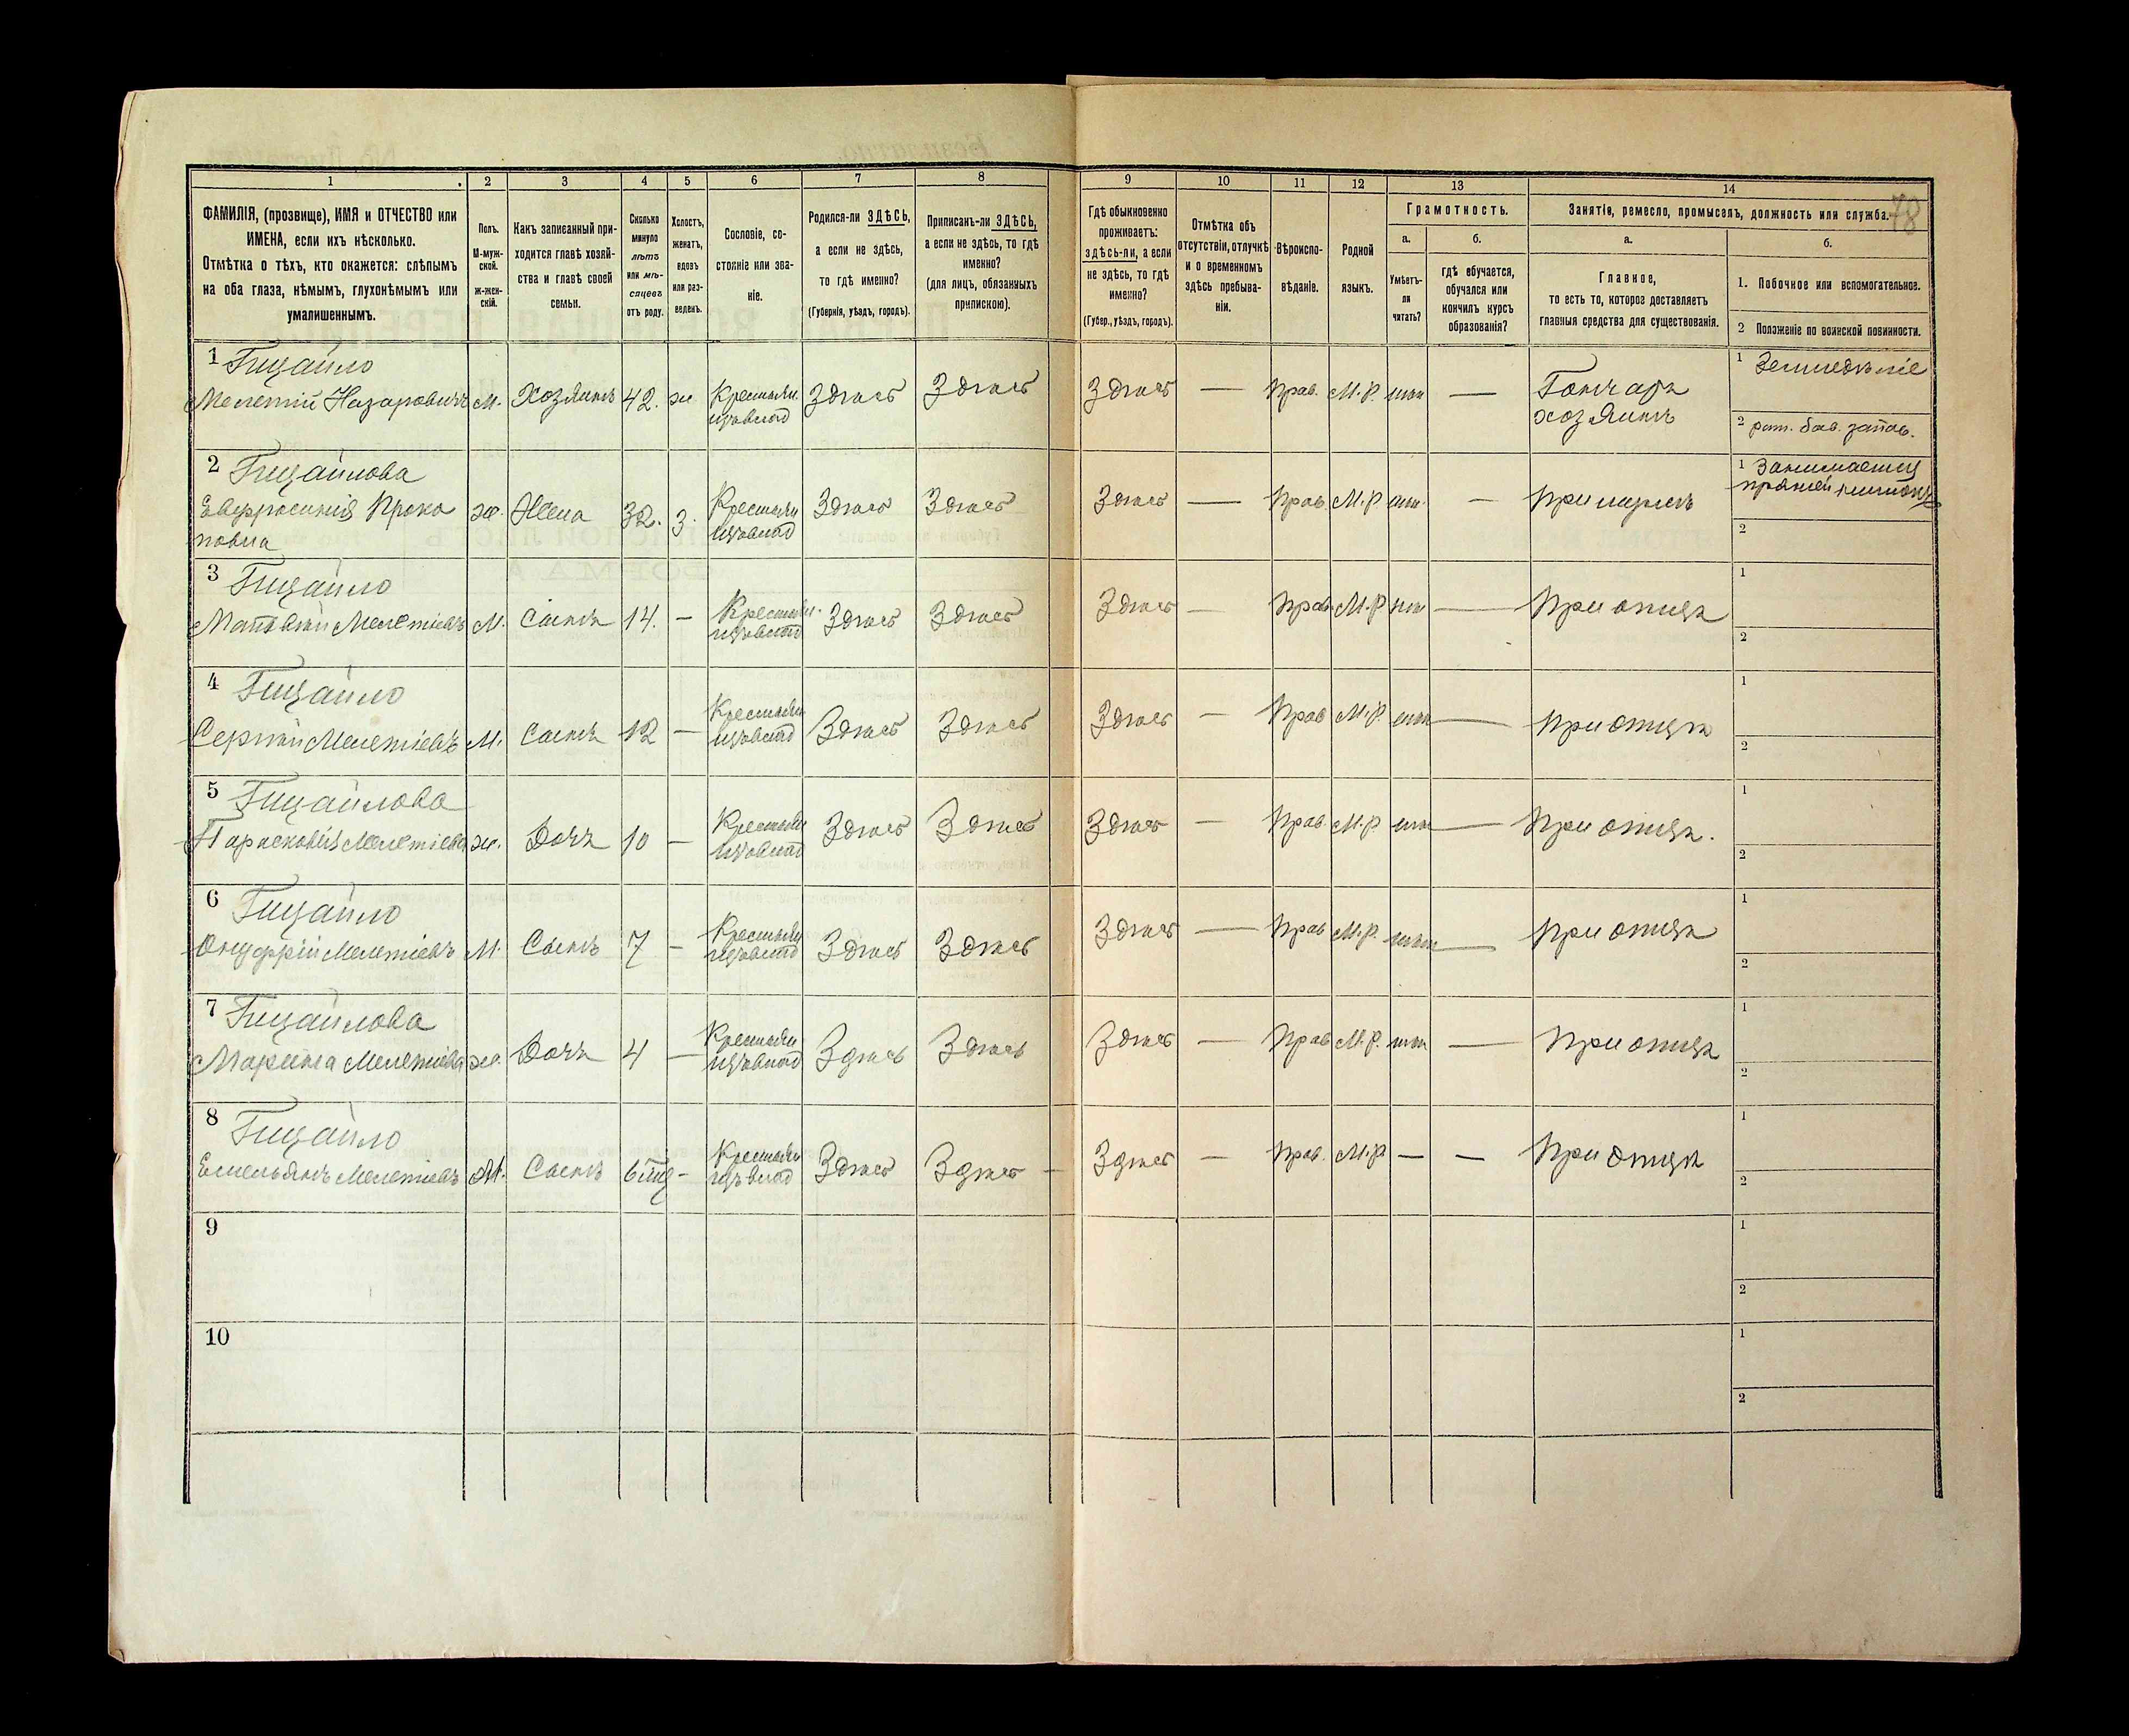 78
1 2 3 4 5 6 7 8 9 10 11 12 13 14
ФАМИЛІЯ, (прозвище), ИМЯ и ОТЧЕСТВО или
ИМЕНА, если ихъ нѣсколько.
Отмѣтка о тѣхъ, кто окажется: слѣпымъ
на оба глаза, нѣмымъ, глухонѣмымъ или
умалишеннымъ.
Полъ.
М-муж-
ской.
ж-жен-
скій.
Какъ записанный при-
ходится главѣ хозяй-
ства и главѣ своей
семьи.
Сколько
минуло
лѣтъ
или мѣ-
сяцевъ
отъ роду.
Холостъ,
женатъ,
вдовъ
или раз-
веденъ.
Сословіе, со-
стояніе или зва-
ніе.
Родился-ли ЗДѢСЬ,
а если не здѣсь,
то гдѣ именно?
(Губернія, уѣздъ, городъ).
Приписанъ-ли ЗДѢСЬ,
а если не здѣсь, то гдѣ
именно?
(для лицъ, обязанныхъ
припискою).
Гдѣ обыкновенно
проживаетъ:
здѣсь-ли, а если
не здѣсь, то гдѣ
именно?
(Губер., уѣздъ, городъ).
Отмѣтка объ
отсутствіи, отлучкѣ
и о временномъ
здѣсь пребыва-
ніи.
Вѣроиспо-
вѣданіе.
Родной
языкъ.
Грамотность.
а.
Умѣетъ-
ли
читать?
б.
гдѣ обучается,
обучался или
кончилъ курсъ
образованія?
Занятіе, ремесло, промыселъ, должность или служба.
а.
Главное,
то есть то, которое доставляетъ
главныя средства для существованія.
б.
1. Побочное или вспомогательное.
2 Положеніе по воинской повинности.
1 Гицайло
Мелетій Назаровичъ М. Хозяинъ 42. ж Крестьян. Здѣсь Здѣсь Здѣсь — Прав. М.Р. нѣт — Гончаръ
хозяинъ
1 Земледѣліе
2 рат.
2 Гицайлова
Евфросинія Проко
повна ж. Жена 32. з. Крестьян Здѣсь Здѣсь Здѣсь — Прав М.Р. нѣт. — При мужѣ
1 Занимается
пряжей
2
3 Гицайло
Матвѣй Мелетіевъ М. Сынъ 14. — Крестьян. Здѣсь Здѣсь Здѣсь — Прав. М.Р. нѣт — При отцѣ
1
2
4 Гицайло
Сергѣй Мелетіевъ М. Сынъ 12 — Крестьян Здѣсь Здѣсь Здѣсь — Прав М.Р. нѣт — При отцѣ
1
2
5 Гицайлова
Парасковія Мелетіева ж. Дочь 10 — Крестьян Здѣсь Здѣсь Здѣсь — Прав. М.Р. нѣт — При отцѣ.
1
2
6 Гицайло
Онуфрій Мелетіевъ М. Сынъ 7 — Крестьян Здѣсь Здѣсь Здѣсь — Прав М.Р. нѣт — При отцѣ
1
2
7 Гицайлова
Марина Мелетіева ж. Дочь 4 — Крестьян Здѣсь Здѣсь Здѣсь — Прав М.Р. нѣт — При отцѣ
1
2
8 Гицайло
Емельянъ Мелетіевъ М. Сынъ 6 — Крестьян Здѣсь Здѣсь — Здѣсь — Прав. М.Р — — При отцѣ
1
2
9
1
2
10
1
2